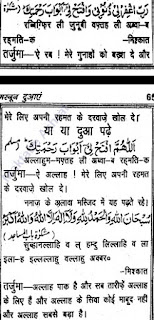 رَبِّ اغْفِرْ لِيْ ذُنُوْبِيْ وَافْتَحْ لِيْ اَبْوَابَ رَحْمَتِكَ
रब्बिग़्फ़िर ली ज़ुनूबी वफ़्तह ली अब्वा-ब
रहमति-क -मिश्कात
तर्जुमा- ऐ रब ! मेरे गुनाहों को बख़्श दे और
मस्नून दुआएं 65
मेरे लिए अपनी रहमत के दरवाज़े खोल दे।
या या दुआ पढ़े
اَللّٰهُمَّ افْتَحْ لِيْ اَبْوَابَ رَحْمَتِكَ
अल्लाहुम-मफ़्तह ली अब्वा-ब रहमति-क
तर्जुमा- ऐ अल्लाह ! मेरे लिए अपनी रहमत
के दरवाज़े खोल दे।
नमाज़ के अलावा मस्जिद में यह पढ़ते रहे।
سُبْحَانَ اللّٰهِ وَالْحَمْدُ لِلّٰهِ وَلَا اِلٰهَ اِلَّا اللّٰهُ وَاللّٰهُ اَكْبَرُ
सुब्हानल्लाहि व ल हम्दु लिल्लाहि व ला
इला-ह इल्लल्लाहु वल्लाहु अक्बर०
-मिश्कात
तर्जुमा- अल्लाह पाक है और सब तारीफ़ें अल्लाह
के लिए हैं और अल्लाह के सिवा कोई माबूद नहीं
और अल्लाह सबसे बड़ा है।